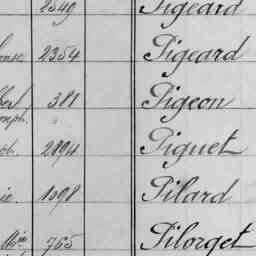 2349 Pigeard
2354 Pigeard
381 Pigeon
2894 Piguet
1098 Pilard
765 Pilorget